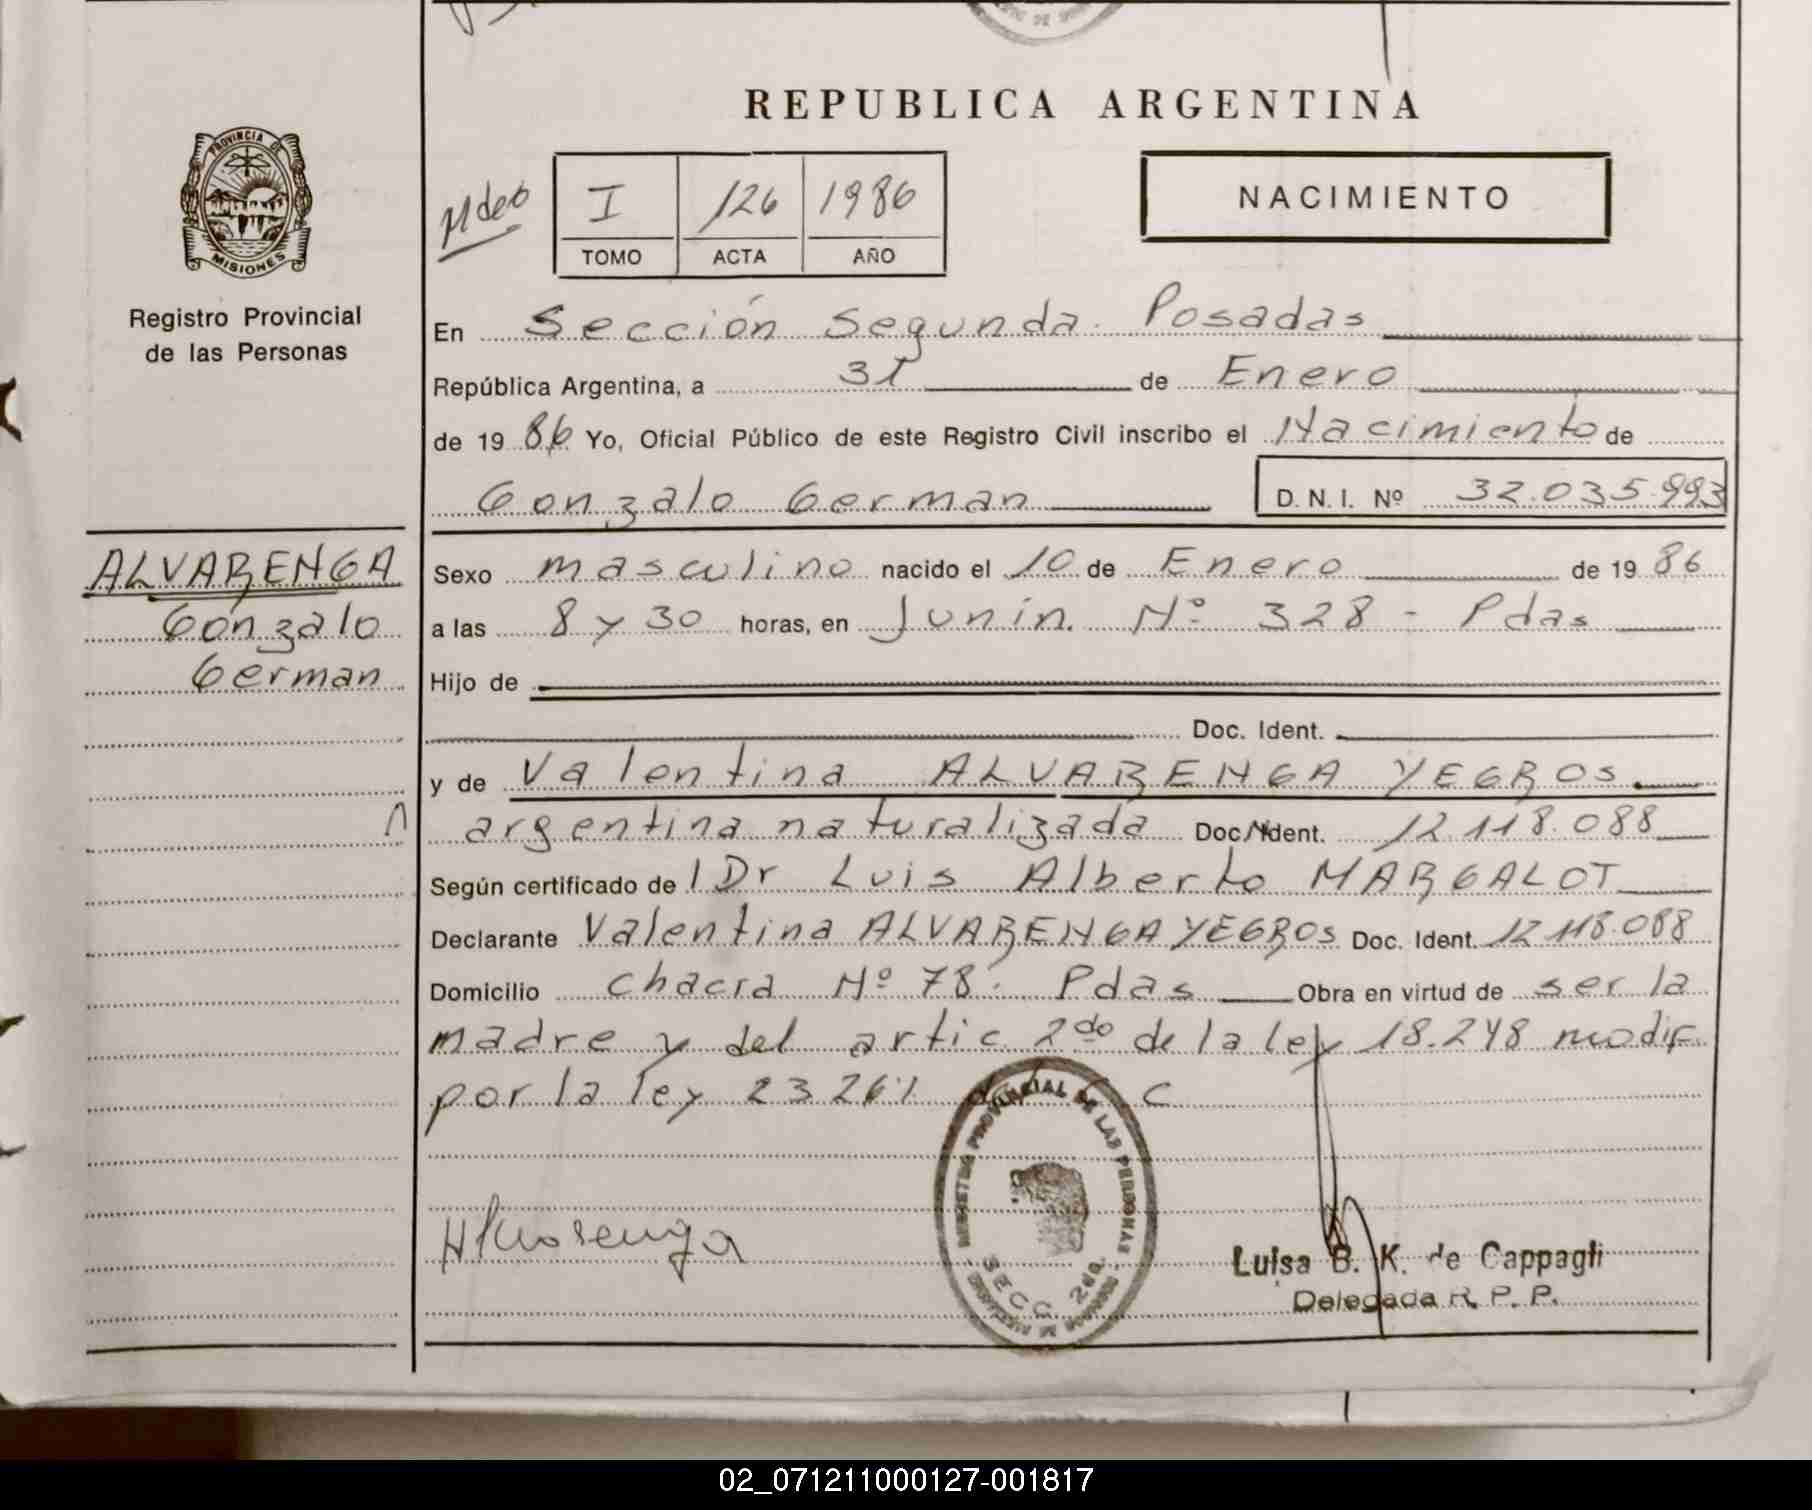 REPUBLICA ARGENTINA
PROVINCIA DE
MISIONES
Registro Provincial
de las Personas
I 126 1986
TOMO ACTA AÑO
NACIMIENTO
En Sección Segunda. Posadas
República Argentina, a 31 de Enero
de 19 86 Yo, Oficial Público de este Registro Civil inscribo el Nacimiento de
Gonzalo German D. N. I. Nº 32.035.993
ALVARENGA
Gonzalo
German
Sexo masculino nacido el 10 de Enero de 19 86
a las 8 y 30 horas, en Junín. Nº 328 - Pdas
Hijo de
Doc. Ident.
y de Valentina ALVARENGA YEGROS.
argentina naturalizada Doc. Ident. 12.118.088
Según certificado de l Dr Luis Alberto MARGALOT
Declarante Valentina ALVARENGA YEGROS Doc. Ident. 12.118.088
Domicilio Chacra Nº 78. Pdas Obra en virtud de ser la
madre y del artic 2do de la ley 18.248 modif.
por la ley 23 264 C
REGISTRO PROVINCIAL DE LAS PERSONAS
SECC 2da.
Alvarenga
Luisa B. K. de Cappagli
Delegada R. P. P.
02_071211000127-001817